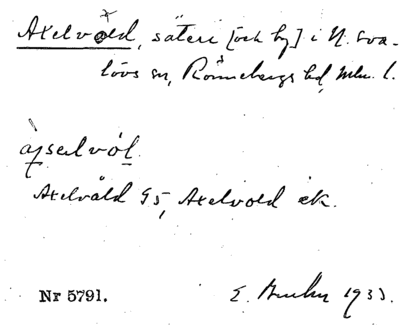 Axelvold, säteri [och by] i N. Sva-
lövs sn, Rönnebergs hd, Mlm. l.
Axelvåld G5, Axelvold ek.
Nr 5791. E. 1933